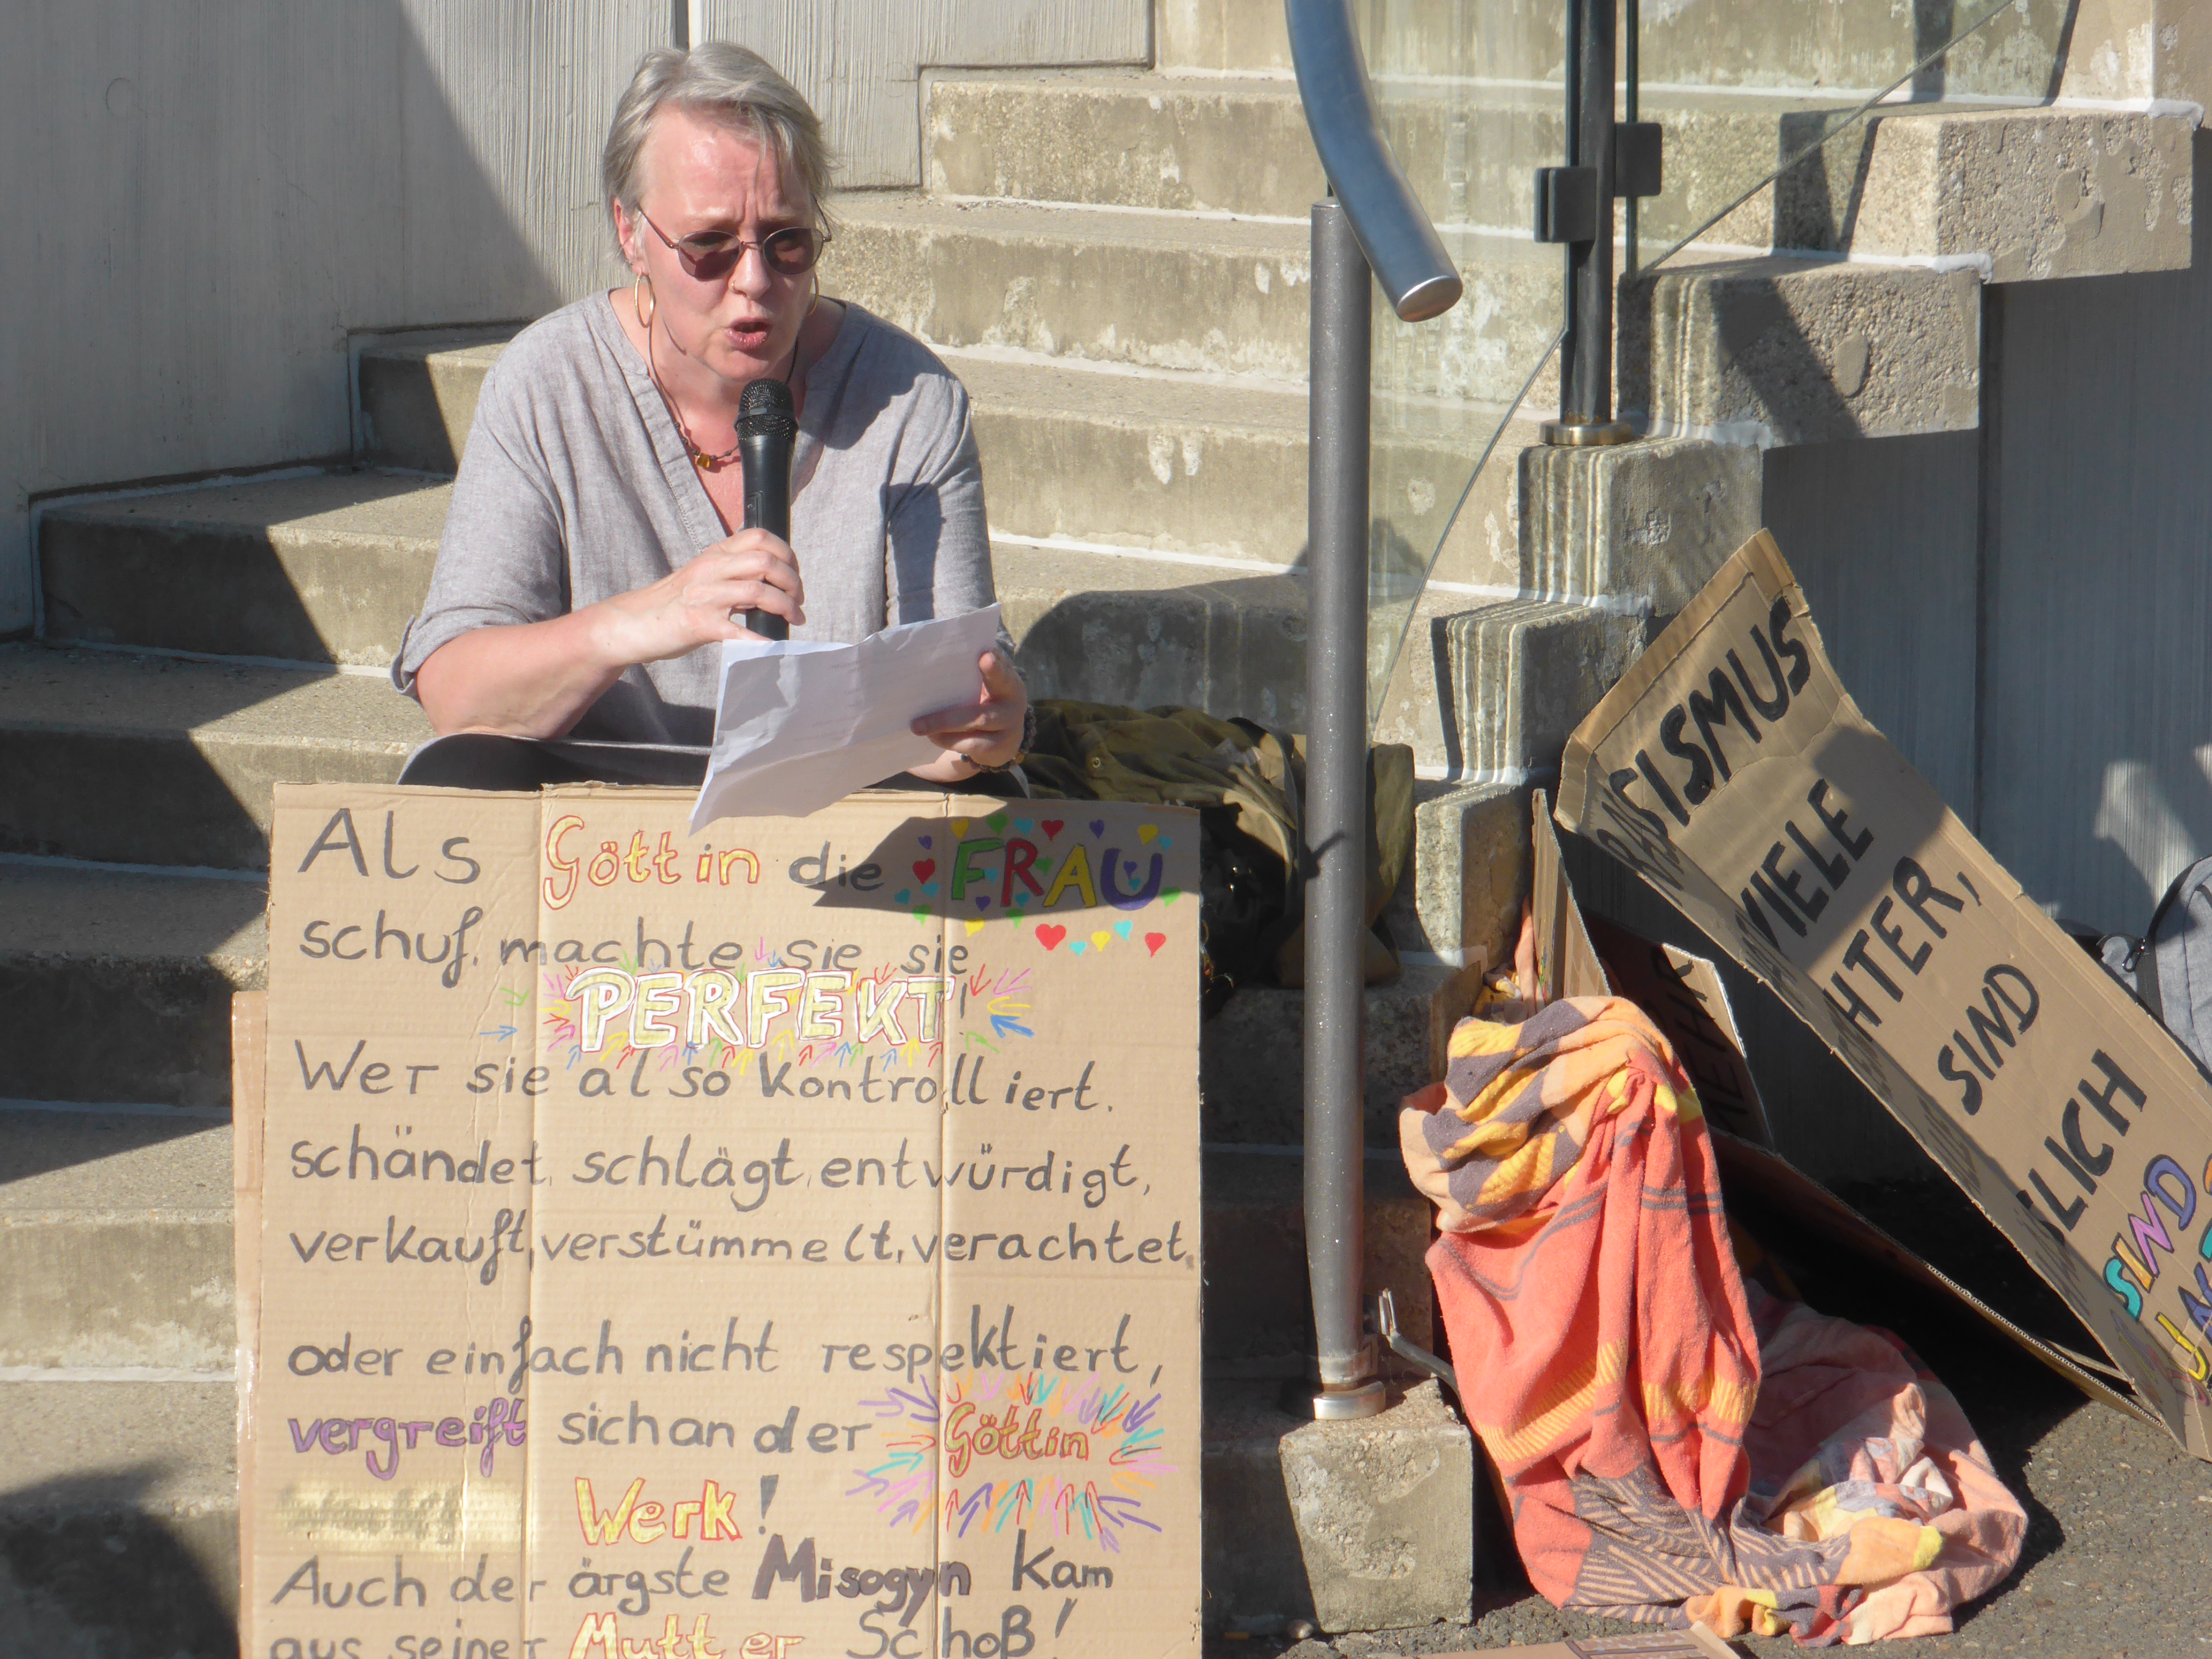 Als Göttin die FRAU
schuf, machte sie sie
PERFEKT!
Wer sie also kontrolliert,
schändet, schlägt, entwürdigt,
verkauft, verstümmelt, verachtet,
oder einfach nicht respektiert,
vergreift sich an der Göttin
Werk!
Auch der ärgste Misogyn kam
aus seiner Mutter Schoß!
SISMUS
VIELE
HTER,
SIND
LICH
SIND